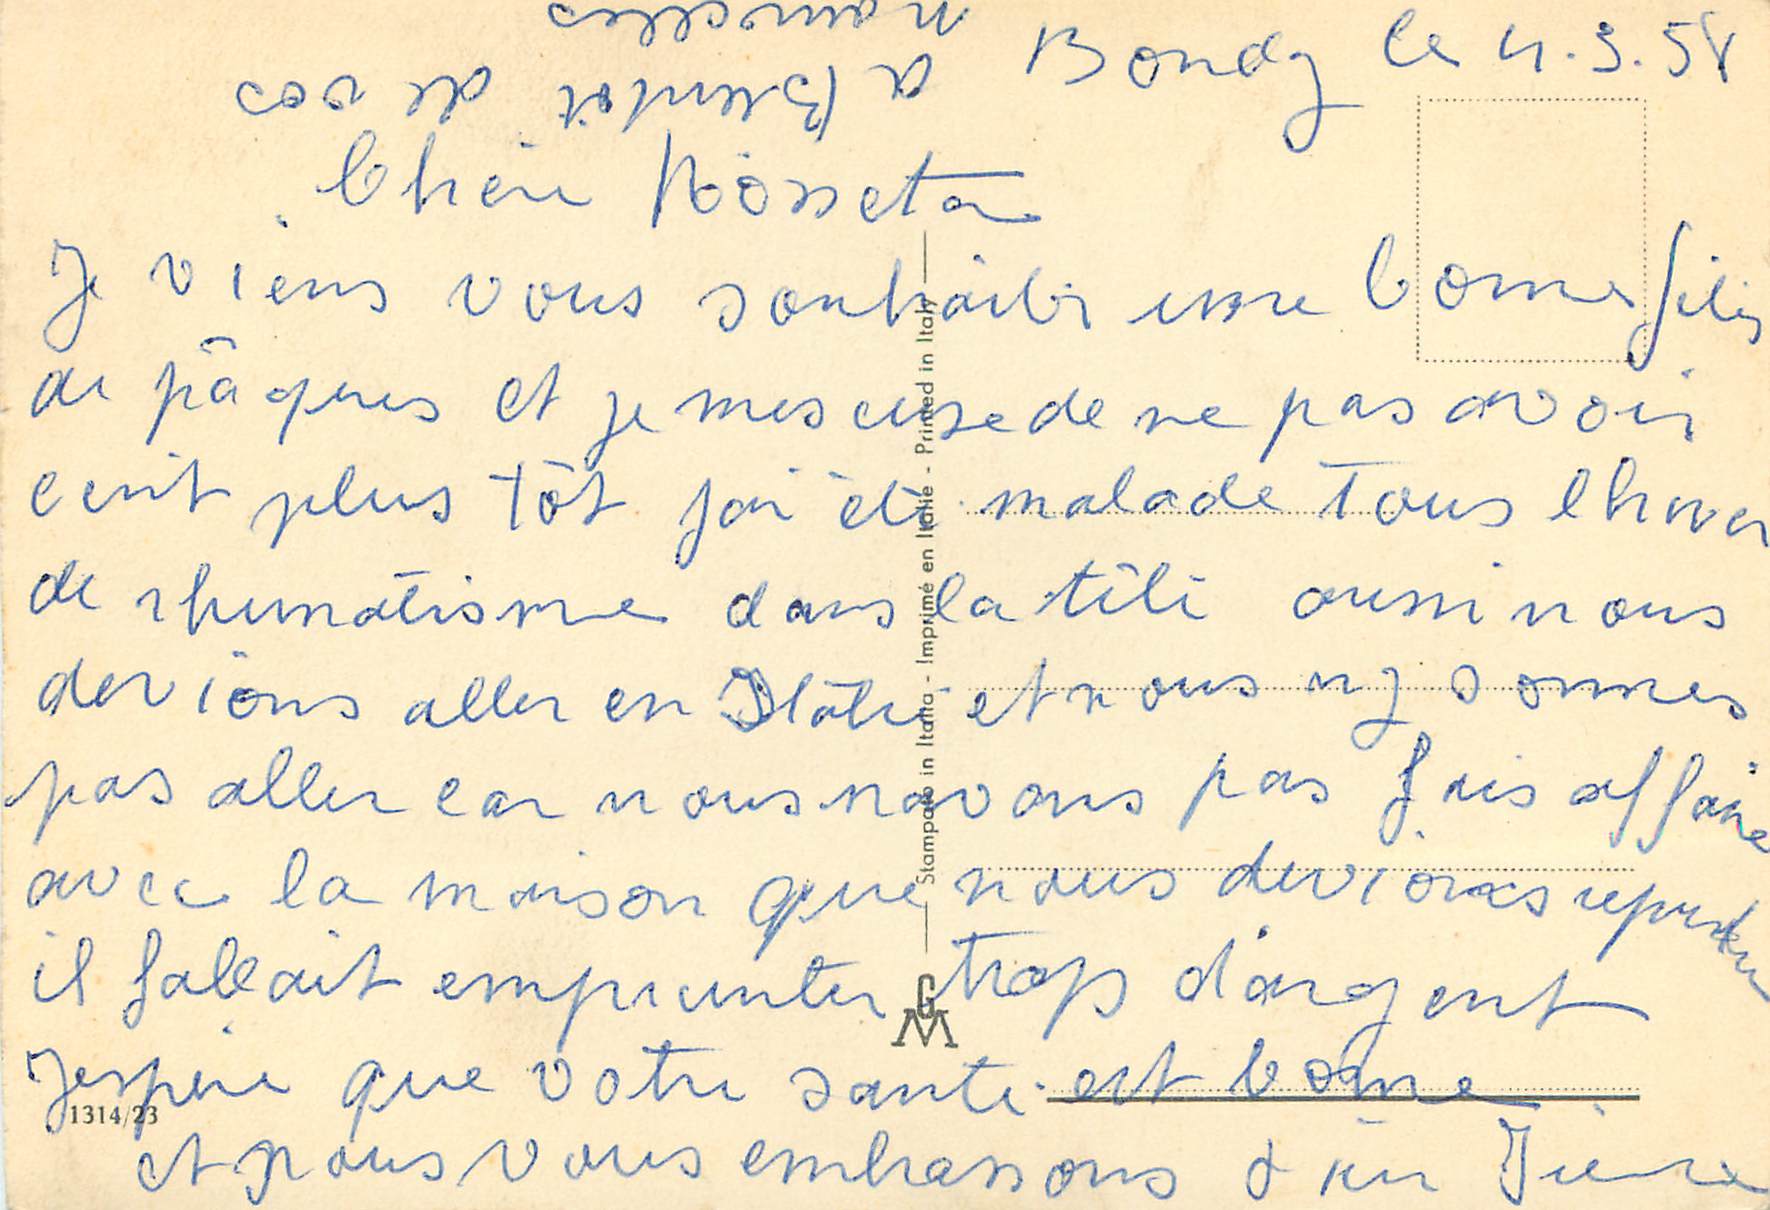 Bondy le 4.3.58
Chère Rosseta
Je viens vous souhaiter une bonne fêtes
de pâques et je mescuse de ne pas avoir
ecrit plus tôt jai été malade tous lhiver
de rhumatisme dans la tête aussi nous
devions aller en Italie et nous ny sommes
pas aller car nous navons pas fais affaire
avec la maison que nous devions reprendre
il fallait emprunter trop d'argent
Jespere que votre santé est bonne
et nous vous embrassons
a Bientôt de vos
nouvelles
Stampato in Italia - Imprimé en Italie - Printed in Italy
GM
1314/23